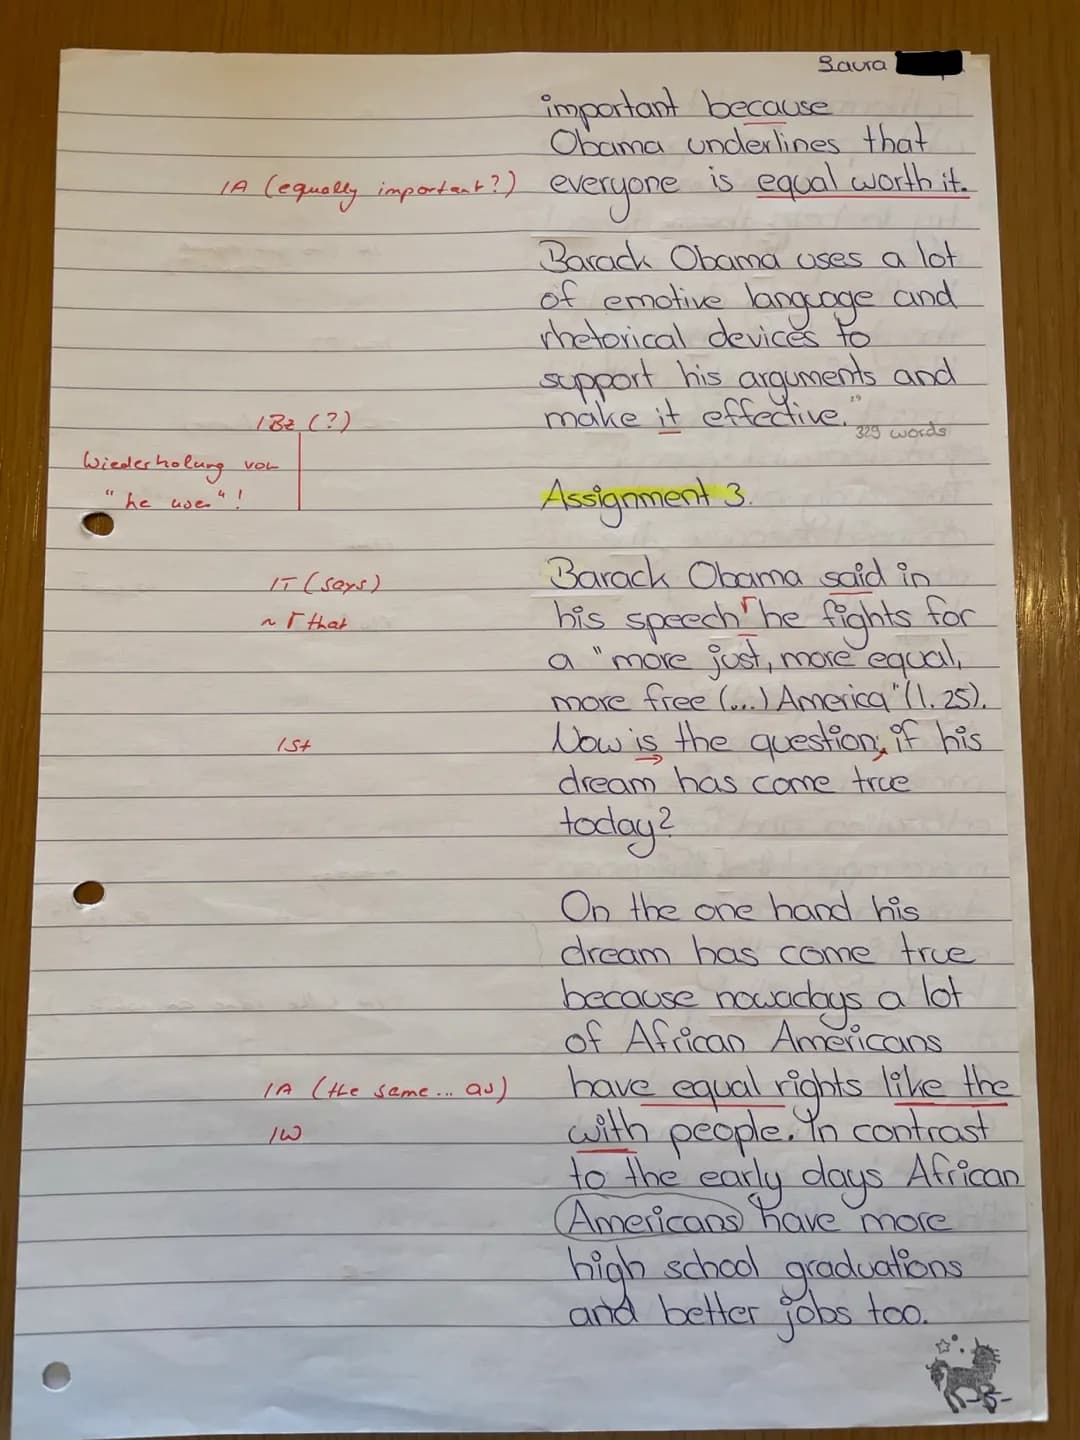 Laura
important because
Obama underlines that
IA (equally important?) everyone is equal worth it.
Barack Obama uses a lot
of emotive language and
rhetorical devices to
support his arguments and
IBz (?) make it effective."
329 words
Wiederholung von
"he uses"!
Assignment 3.
IT (says) Barack Obama said in
~ Γ that his speech Γ he fights for
a "more just, more equal,
more free (...) America" (l. 25).
ISt Now is the question, if his
dream has come true
today?
On the one hand his
dream has come true
because nowadays a lot
of African Americans
IA (the same... as) have equal rights like the
IW with people. In contrast
to the early days African
Americans have more
high school graduations
and better jobs too.
-5-